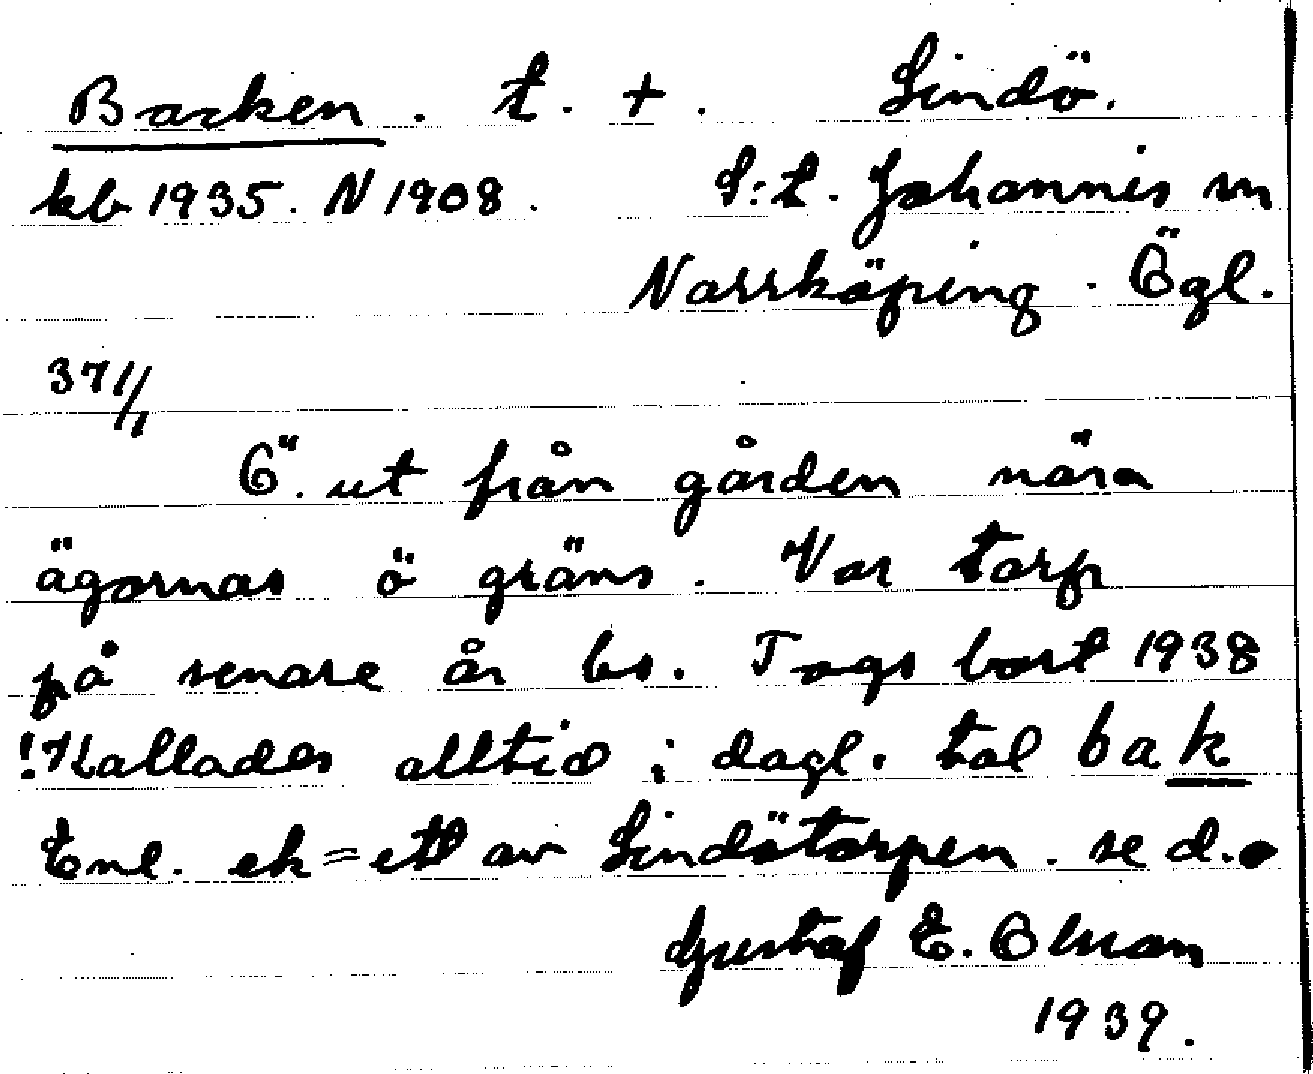 Backen. t. +. Lindö.
kb 1935. N 1908. S:t. Johannis m
Norrköping. Ögl.
371/1
Ö. ut från gården nära
ägornas ö gräns. Var torp
på senare år bs. Togs bort 1938
!Kallades alltid i dagl. tal bak
Enl. ek = ett av Lindötorpen. se d.o
Gustaf E. Olman
1939.